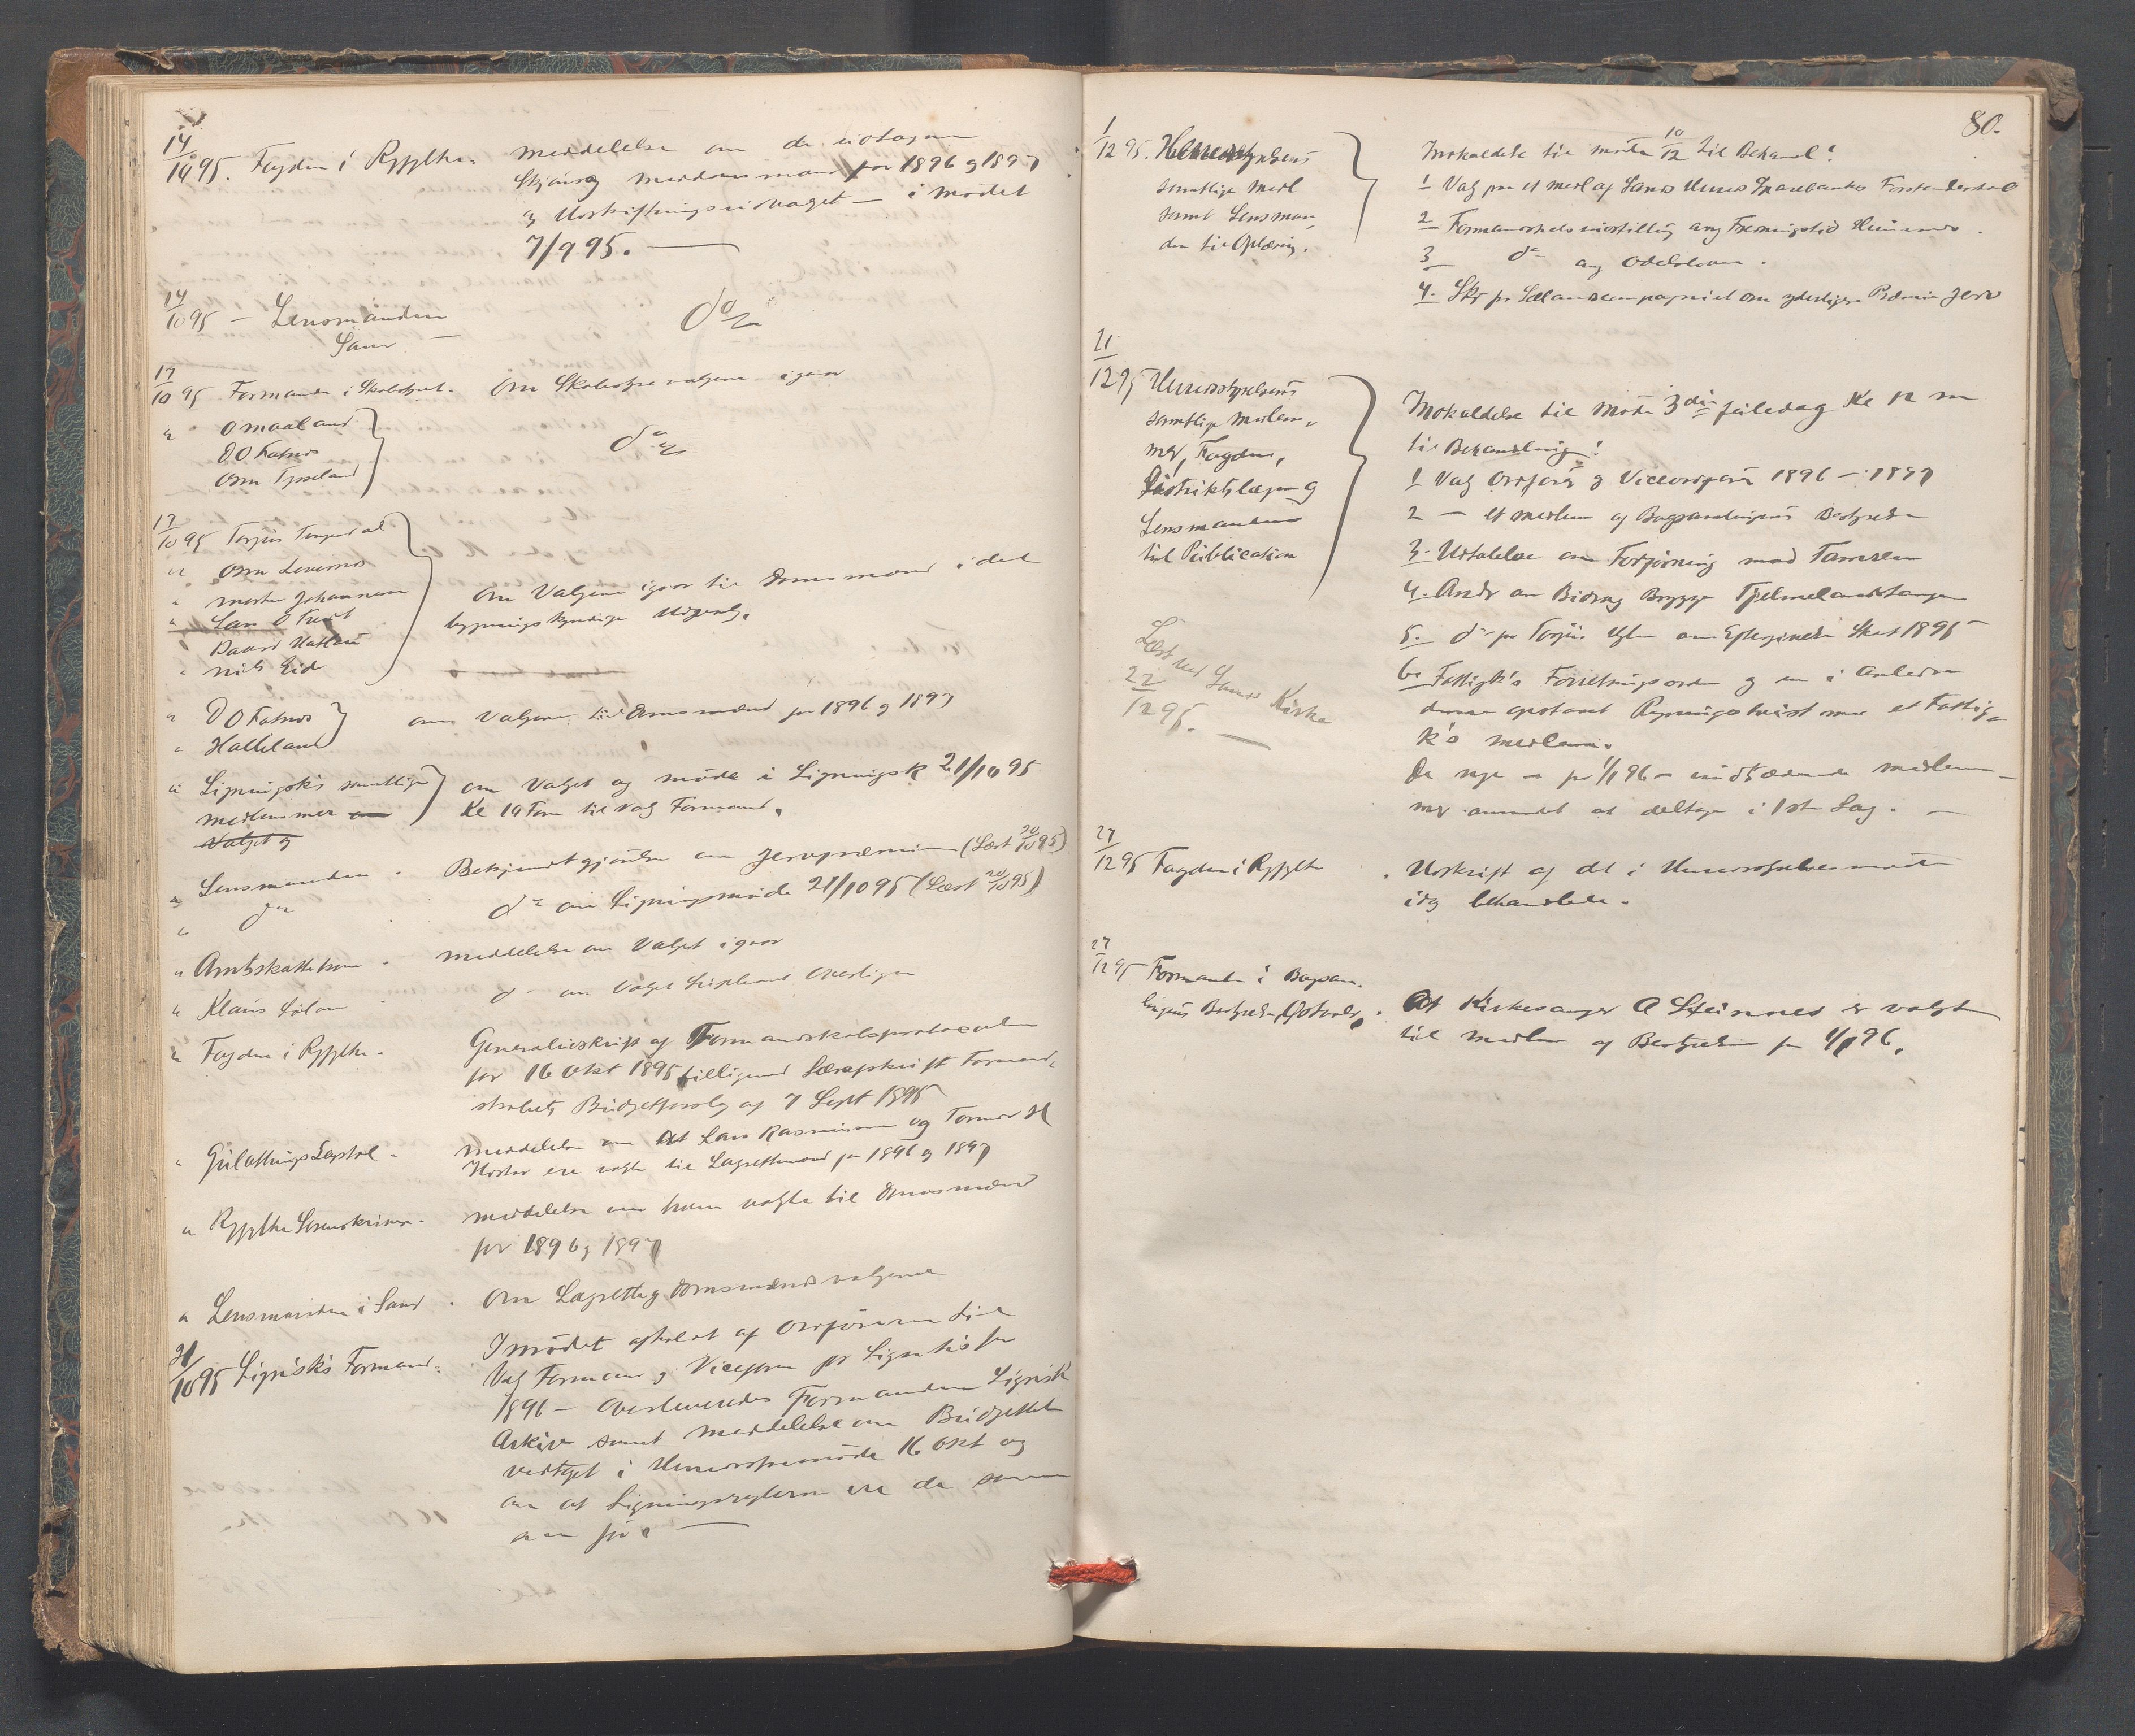 14/10 95. Fogden i Ryfylke. Meddelelse om de udtagne
Skjøns og Meddomsmænd for 1896 og 1897
og Udskriftningsudvaget — i Mødet
7/9 95. —
14/10 95 — Lensmanden
Sand — do
17/10 95 Formanden i Skolestyret. Om Skolestyrevalgene igaar
" O Maaland
O O Fatnes
Osm Tysseland
do
17/10 95 Torjus
" Osm
" Morten Johannesen
" Lars O Tveit
Baard
" Nils Eid
Om Valgene igaar til Domsmænd i det
bygningskyndige Udvalg.
" O O Fatnes
" Halleland
om Valgene til Domsmænd for 1896 og 1897
" Ligningsk's samtlige
Medlemmer om
Valget og
om Valget og møde i Ligningsk 21/10 95
Kl 10 Form til Valg Formand.
" Lensmanden . Bekjendtgjørelse om Jervpræmien (Læst 20/10 95)
" do do om Ligningsmøde 21/10 95 (Læst 20/10 95)
" Amtsskattekom . Meddelelse om Valget igaar
" Klaus . do om Valget
" Fogden i Ryfylke . Generaludskrift af Formandskabsprotocolen
for 16 Okt 1895 tilligemed Særafskrift Formand-
skabets Budgetforslag af 7 Sept 1895
" Gulathings Lagstol . Meddelelse om At Lars Rasmussen og Tormod H
ere valgte til Lagrettemænd for 1896 og 1897
" Ryfylke Sorenskriver . Meddelelse om hvem valgte til Domsmænd
for 1896 og 1897
" Lensmanden i Sand . Om Lagrette og Domsmændsvalgene
21/10 95 Lignsk's Formand . I mødet afholdt af Ordføreren til
Valg Formand og Viceform for Lignsk's for
1896 — Overleveredes Formanden Lignsk
Arkiv samt Meddelelse om Budgettet
vedtaget i Herredsstmøde 16 Okt og
om at Ligningsreglerne ere de samme
som før. —
80.
1/12 95. Herredsstyrelsens
samtlige Medl
samt Lensman-
den til Opslæsning.
Indkaldelse til møde 10/12 til Behandl:
1 Valg paa et Medl af Sands Herreds Sparebanks Forstanderskab
2 Formandskabsindstilling ang Fredningstid .
3 do ang Odelsloven .
4. Skr fr Sælandscompagniet om yderligere Præmie Jerv
21/12 95 Herredsstyrelsens
samtlige Medlem-
mer, Fogden,
Distriktslægen og
Lensmanden
til Publication
Indkaldelse til Møde 3die juledag Kl 12 m
til Behandling:
1 Valg Ordfører og Viceordfører 1896 — 1897
2 — et Medlem af Bogsamlingens Bestyrelse
3. Udtalelse om Forføining mod Tamren
4. Andr om Bidrag Brygge Fjelmelandstangen
5. do fr Torjus om Eftergivelse Skat 1895
6. Fattigk's Forretningsorden og en i Anledn
denne opstaaet Regningstvist med et Fattig-
k's Medlem.
De nye — fr 1/1 96 — indtrædende Medlem-
mer anmodet at deltage i 1ste Sag. —
Læst ved Sands Kirke
22/12 95. —
27/12 95 Fogden i Ryfylke . Udskrift af det i Herredsstyrelsesmøde
idag behandlede.
27/12 95 Formanden i Bogsam-
lingens Bestyrelse . At Kirkesanger A Steinnes er valgt
til Medlem af Bestyrelsen fra 1/1 96.